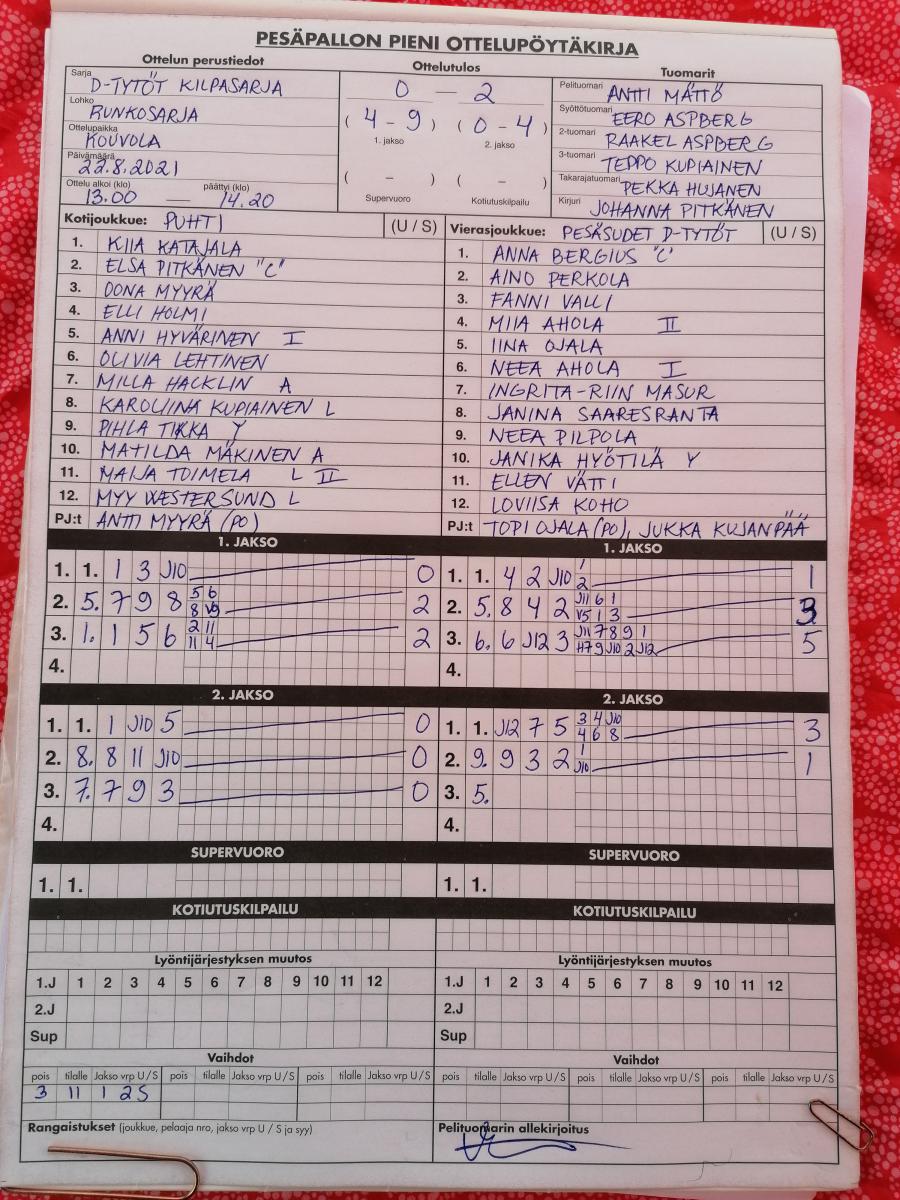 PESÄPALLON PIENI OTTELUPÖYTÄKIRJA
Ottelun perustiedot
Sarja
D-TYTÖT KILPASARJA
Lohko
RUNKOSARJA
Ottelupaikka
KOUVOLA
Päivämäärä
22.8.2021
Ottelu alkoi (klo) päättyi (klo)
13.00 — 14.20
Ottelutulos
0 — 2
( 4 - 9 ) ( 0 - 4 )
1. jakso 2. jakso
( – ) ( – )
Supervuoro Kotiutuskilpailu
Tuomarit
Pelituomari ANTTI MÄTTÖ
Syöttötuomari EERO ASPBERG
2-tuomari RAAKEL ASPBERG
3-tuomari TEPPO KUPIAINEN
Takarajatuomari PEKKA HUJANEN
Kirjuri JOHANNA PITKÄNEN
Kotijoukkue: PUHTI (U / S)
1. KIIA KATAJALA
2. ELSA PITKÄNEN "C"
3. OONA MYYRÄ
4. ELLI HOLMI
5. ANNI HYVÄRINEN I
6. OLIVIA LEHTINEN
7. MILLA HACKLIN A
8. KAROLIINA KUPIAINEN L
9. PIHLA TIKKA Y
10. MATILDA MÄKINEN A
11. MAIJA TOIMELA L II
12. MYY WESTERSUND L
PJ:t ANTTI MYYRÄ (PO)
Vierasjoukkue: PESÄSUDET D-TYTÖT (U / S)
1. ANNA BERGIUS "C"
2. AINO PERKOLA
3. FANNI VALLI
4. MIIA AHOLA II
5. IINA OJALA
6. NEEA AHOLA I
7. INGRITA-RIIN MASUR
8. JANINA SAARESRANTA
9. NEEA PILPOLA
10. JANIKA HYÖTILÄ Y
11. ELLEN VÄTTI
12. LOVIISA KOHO
PJ:t TOPI OJALA (PO), JUKKA KUJANPÄÄ
1. JAKSO
1. 1. 1 3 J10 0
2. 5. 7 9 8 5 6 2
8 V9
3. 1. 1 5 6 2 11 2
11 4
4.
1. JAKSO
1. 1. 4 2 J10 1 1
2
2. 5. 8 4 2 J11 6 1 3
V5 1 3
3. 6. 6 J12 3 J11 7 8 9 1 5
H7 9 J10 2 J12
4.
2. JAKSO
1. 1. 1 J10 5 0
2. 8. 8 11 J10 0
3. 7. 7 9 3 0
4.
2. JAKSO
1. 1. J12 7 5 3 4 J10 3
4 6 8
2. 9. 9 3 2 1 1
J10
3. 5.
4.
SUPERVUORO
1. 1.
SUPERVUORO
1. 1.
KOTIUTUSKILPAILU
KOTIUTUSKILPAILU
Lyöntijärjestyksen muutos
1.J 1 2 3 4 5 6 7 8 9 10 11 12
2.J
Sup
Lyöntijärjestyksen muutos
1.J 1 2 3 4 5 6 7 8 9 10 11 12
2.J
Sup
Vaihdot
pois tilalle Jakso vrp U / S pois tilalle Jakso vrp U / S pois tilalle Jakso vrp U / S
3 11 1 2S
Vaihdot
pois tilalle Jakso vrp U / S pois tilalle Jakso vrp U / S pois tilalle Jakso vrp U / S
Rangaistukset (joukkue, pelaaja nro, jakso vrp U / S ja syy)
Pelituomarin allekirjoitus